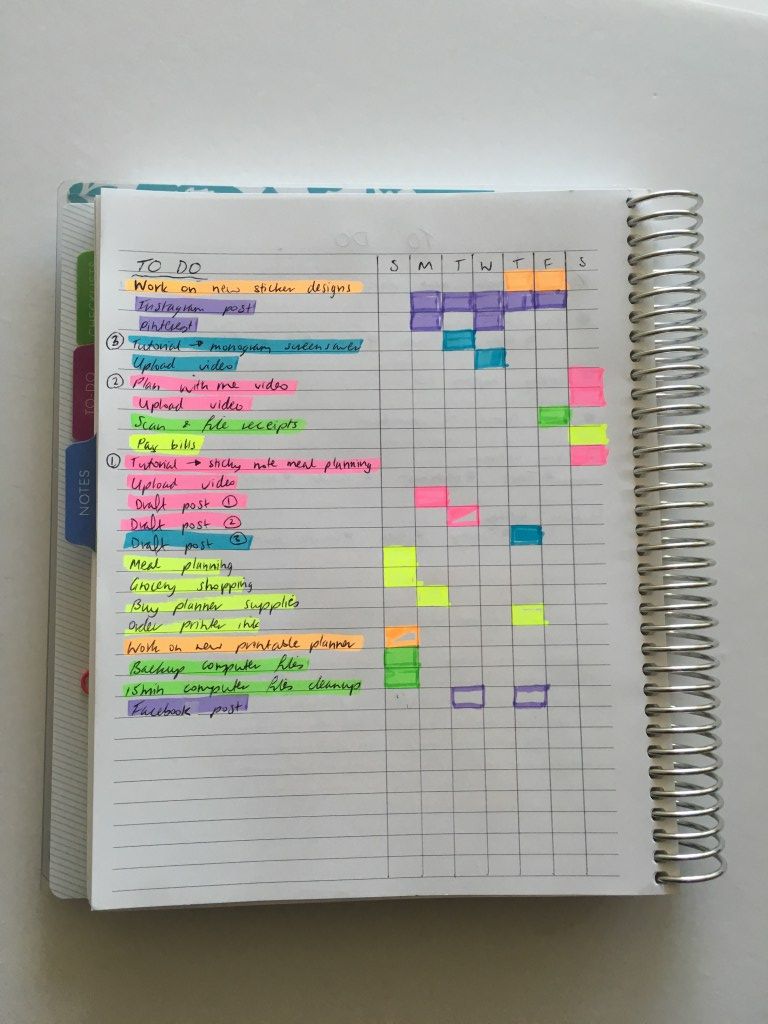 TO DO S M T W T F S
Work on new sticker designs
Instagram post
Pinterest
③ Tutorial → monogram screensaver
Upload video
② Plan with me video
Upload video
Scan & file receipts
Pay bills
① Tutorial → sticky note meal planning
Upload video
Draft post ①
Draft post ②
Draft post ③
Meal planning
Grocery shopping
Buy planner supplies
Order printer ink
Work on new printable planner
Backup computer files
15min computer files cleanup
Facebook post
CHECKLISTS
TO-DO
NOTES